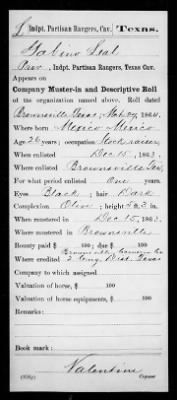 L Indpt. Partisan Rangers, Cav. Texas.
Gabino Leal
Priv, Indpt. Partisan Rangers, Texas Cav.
Appears on
Company Muster-in and Descriptive Roll
of the organization named above. Roll dated
Brownsville, Texas, 1864.
Where born Mexico Mexico
Age 26 years; occupation Stock raiser
When enlisted Dec 15, 1863.
Where enlisted Brownsville Tex.
For what period enlisted One years.
Eyes Black; hair Dark
Complexion Olive; height 5 ft. 3 in.
When mustered in Dec 15, 1863.
Where mustered in Brownsville
Bounty paid $ 100; due $ 100
Where credited Brownsville, Cameron Co
2 Cong. Dist. Texas
Company to which assigned
Valuation of horse, $ 100
Valuation of horse equipments, $ 100
Remarks:
Book mark:
Valentine
Copyist.